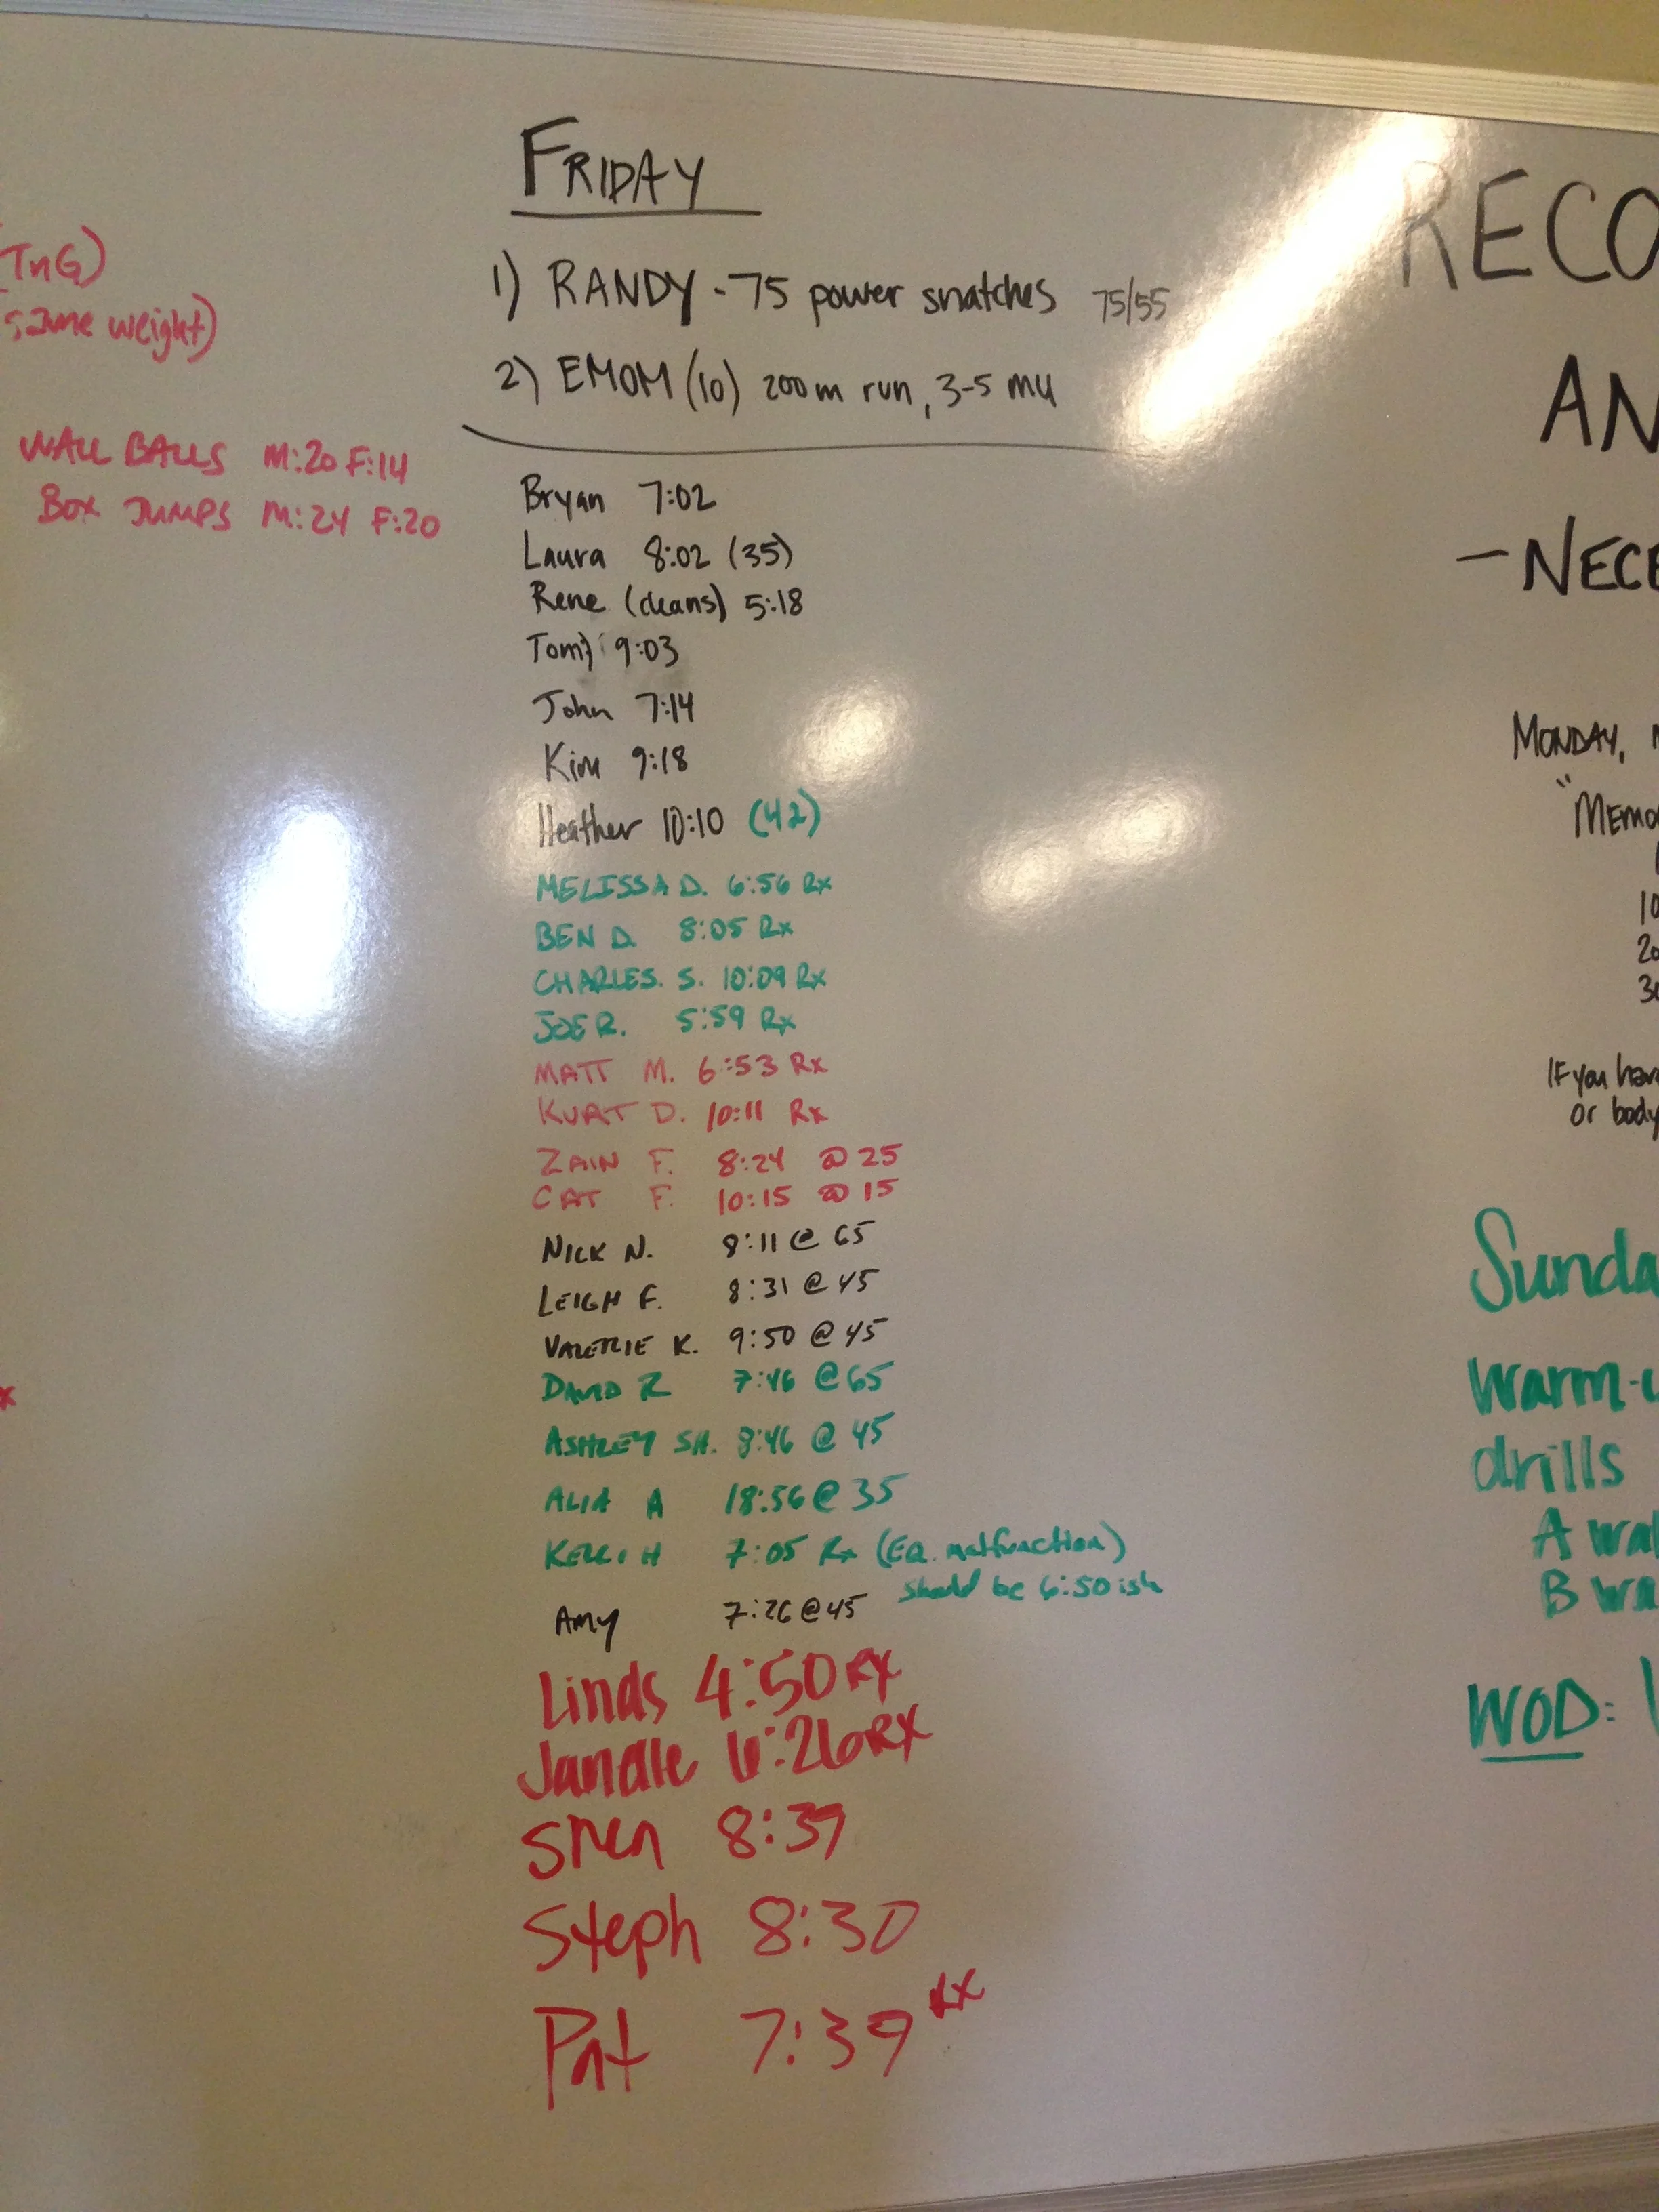 FRIDAY
1) RANDY - 75 power snatches 75/55
2) EMOM (10) 200m run, 3-5 mu
Bryan 7:02
Laura 8:02 (35)
Rene (cleans) 5:18
Tom 9:03
John 7:14
Kim 9:18
Heather 10:10 (42)
MELISSA D. 6:56 Rx
BEN D. 8:05 Rx
CHARLES. S. 10:09 Rx
JOE R. 5:59 Rx
MATT M. 6:53 Rx
KURT D. 10:11 Rx
ZAIN F. 8:24 @ 25
CAT F. 10:15 @ 15
NICK N. 8:11 @ 65
LEIGH F. 8:31 @ 45
VALERIE K. 9:50 @ 45
DAVID R 7:46 @ 65
ASHLEY SH. 8:46 @ 45
ALIA A 18:56 @ 35
KELLI H 7:05 Rx (EQ. malfunction)
should be 6:50 ish
AMY 7:26 @ 45
Linds 4:50 RX
6:26 RX
8:39
Steph 8:30
Pat 7:39 RX
(TnG)
same weight)
WALL BALLS M:20 F:14
BOX JUMPS M:24 F:20
x
RECO
AN
- NECE
MONDAY,
"MEMO
10
20
30
IF you have
or body
Sunda
Warm-u
drills
A wal
B wa
WOD: